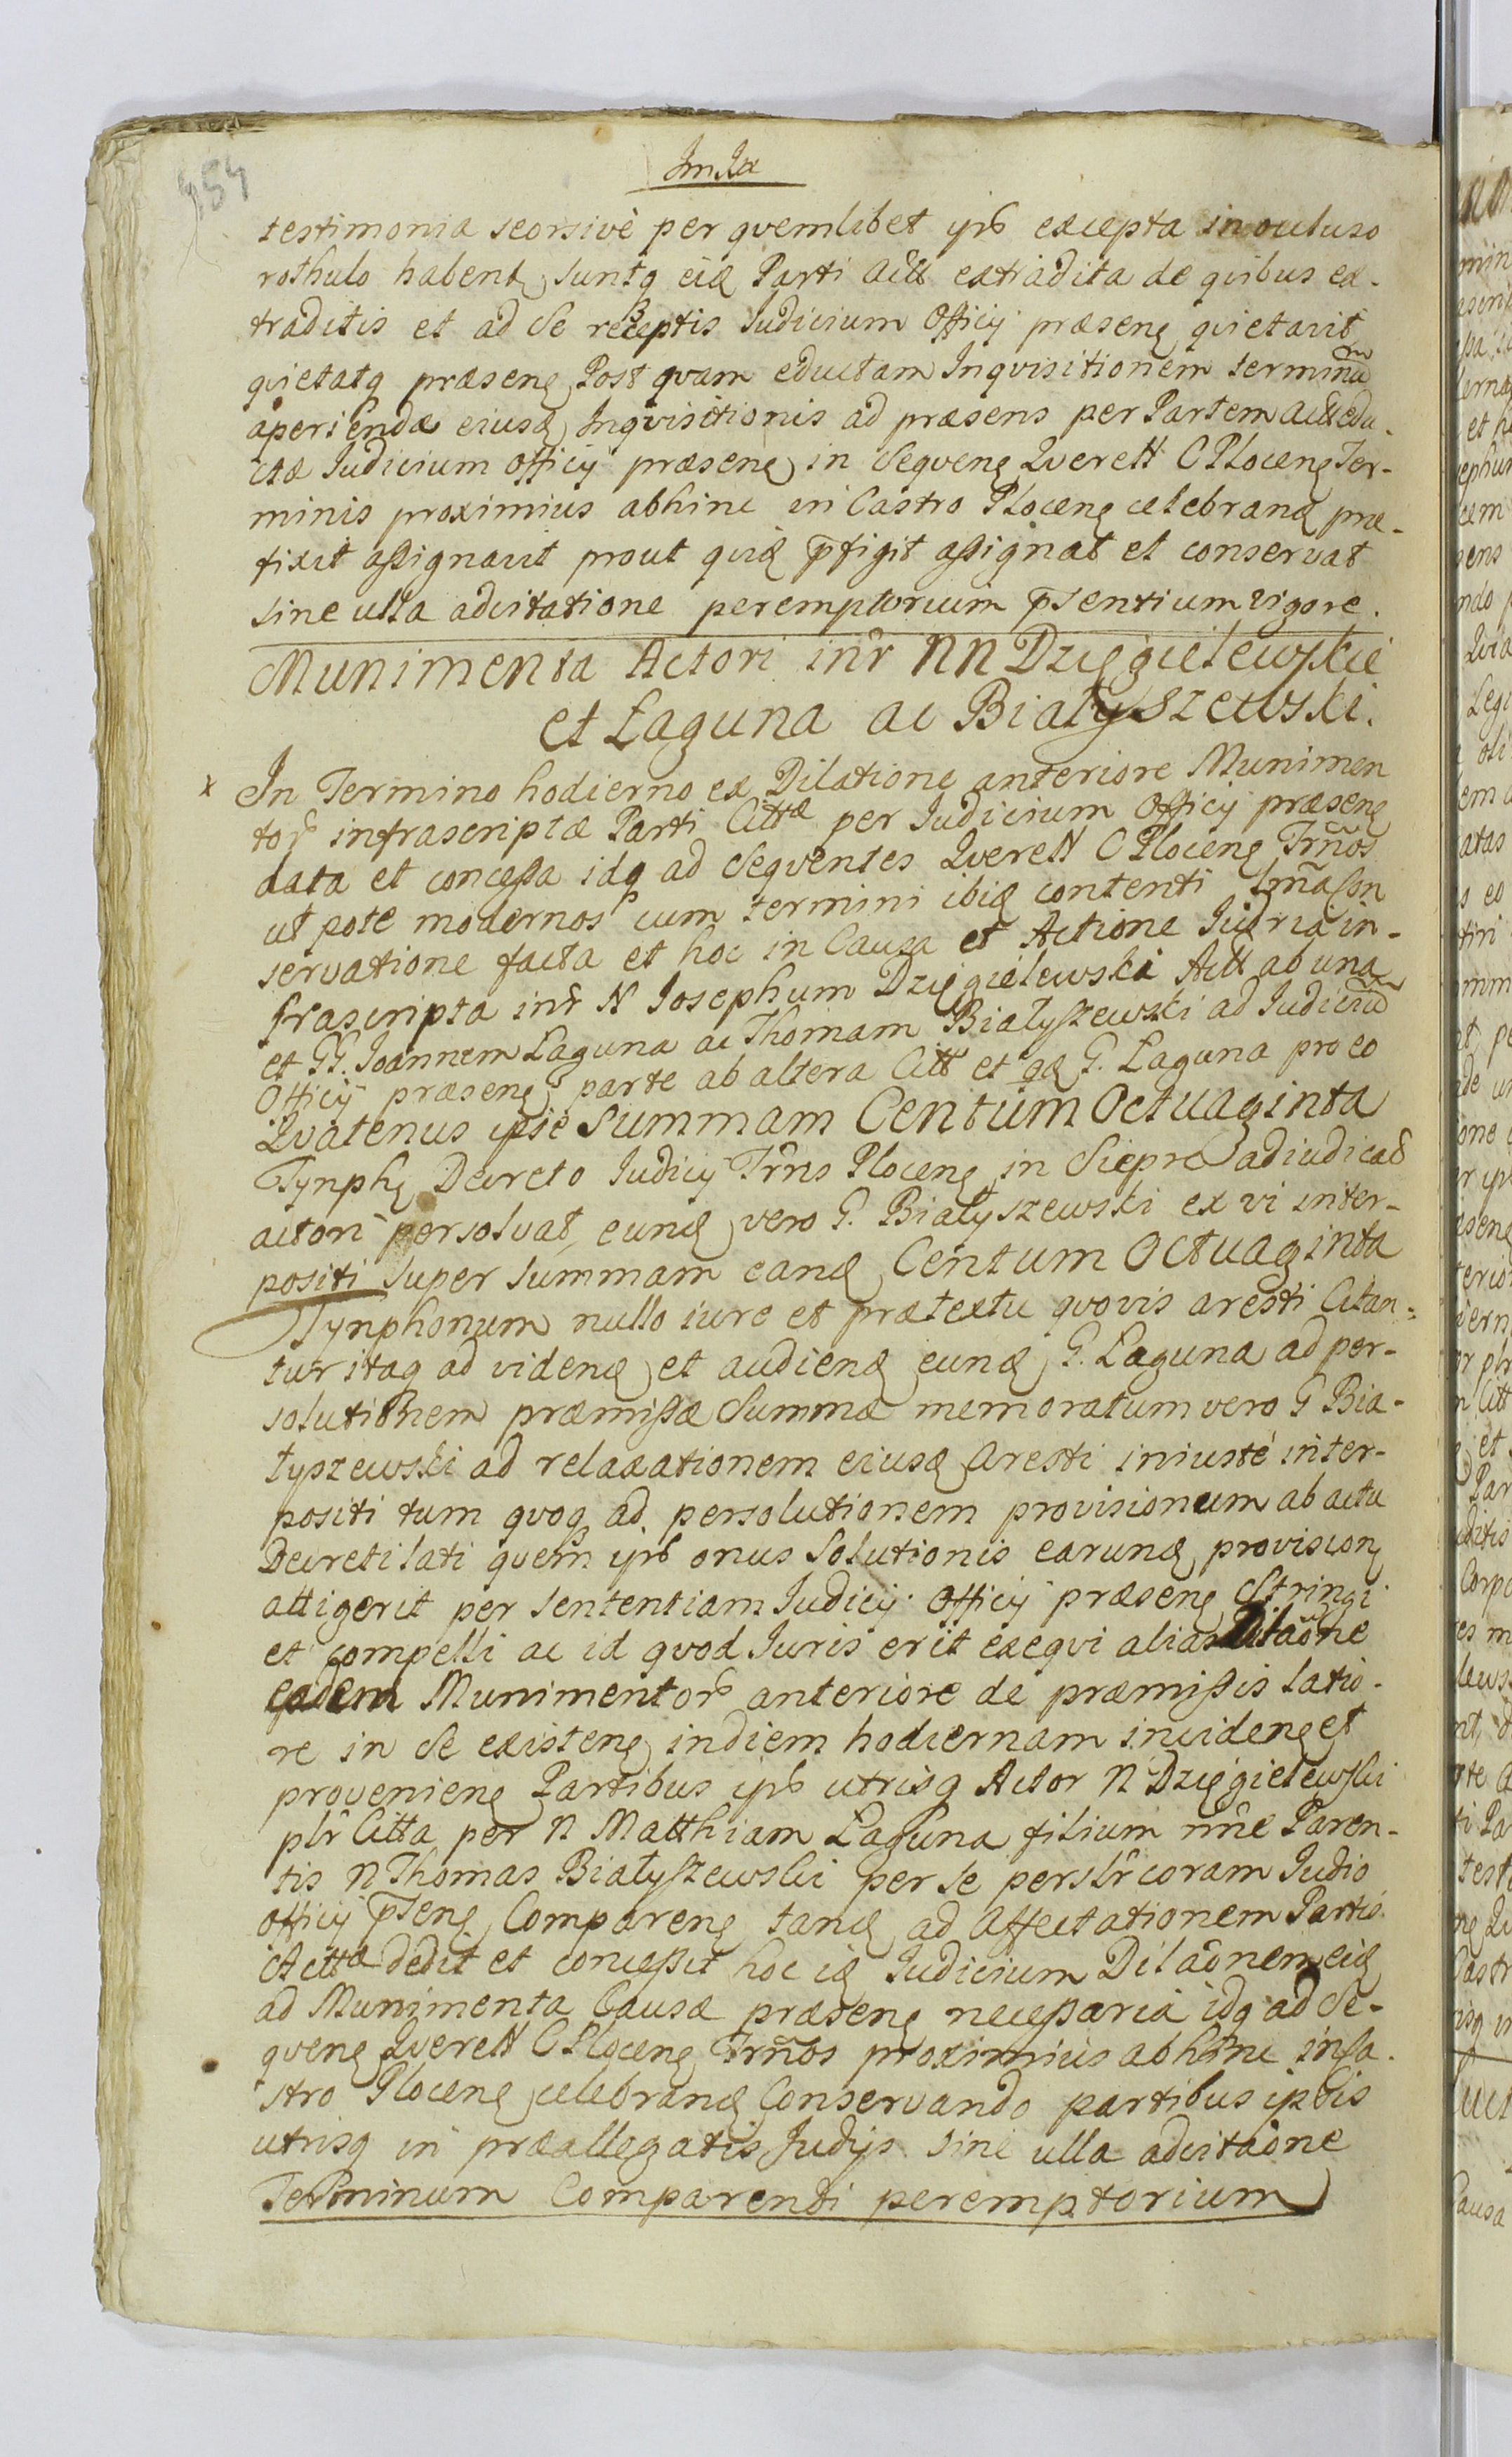 954
testimonia seorsivè per qvemlibet ypb excepta in occluso
rothulo habent, suntq eid Parti Actt extradita de qvibus ex-
traditis et ad se receptis Judicium Officij præsens qvietavit
qvietatq præsens Post qvam eductam Inqvisitionem terminũ
aperiendæ eiusd Inqvisitionis ad præsens per Partem Actt edu-
ctæ Judicium Officij præsens in Seqvens Qverell C Plocens Ter-
minis proximius abhinc in Castro Plocens celebrand præ-
fixit assignavit prout qvid p̃figit assignat et conservat
sine ulla adcitatione peremptorium p̃sentium vigore.
Munimenta Actori intr NN Dzięgielewskie
et Laguna ac Białyszewski.
x In Termino hodierno ex Dilatione anteriore Munimen
tor infrascriptæ Parti Cittæ per Judicium Officij præsens
data et concessa idq ad Seqventes Qverell C Plocens Trños
ut pote modernos cum termini ibid contenti Con
servatione facta et hoc in Causa et Actione Judria in-
frascripta intr N Josephum Dzięgielewski Actt ab una
et GG. Joannem Laguna ac Thomam Białyszewski ad Judiciũ
Officij præsens parte ab altera Citt et qd G. Laguna pro eo
Qvatenus ipse Summam Centum Octuaginta
Tynph Decreto Judicij Trns Plocens in Siepre adiudicat
actori persolvat, eund vero G. Białyszewski ex vi inter-
positi super summam eand Centum Octuaginta
Tynphonum nullo iure et prætextu qvovis aresti Citan-
tur itaq ad vidend et audiend eund G. Laguna ad per-
solutionem præmissæ Summæ memoratum vero G Bia-
łyszewski ad relaxationem eiusd Aresti iniustè inter-
positi tum qvoq ad persolutionem provisionum ab actu
Decreti lati qvem ypb onus Solutionis earund provision
attigerit per sententiam Judicij Officij præsens Stringi
et compelli ac id qvod Juris erit exeqvi alias Dilãone
eadem Munimentor anteriore de præmissis latio-
re in se existens in diem hodiernam incidens et
proveniens Partibus ypb utrisq Actor N Dzięgielewski
plr Citta per N Matthiam Laguna filium nñe Paren-
tis N Thomas Białyszewski per se perslr coram Judio
Officij p̃sens Comparens tand ad Affectationem Partis
Acttæ dedit et concessit hoc id Judicium Dilãonem eid
ad Munimenta Causæ præsens necessaria idq ad Se-
qvens Qverell C Plocens Trños proximius abhinc in Ca-
stro Plocens celebrand Conservando partibus ipsis
utrisq in præallegatis Judijs sine ulla adcitãone
Terminum Comparendi peremptorium